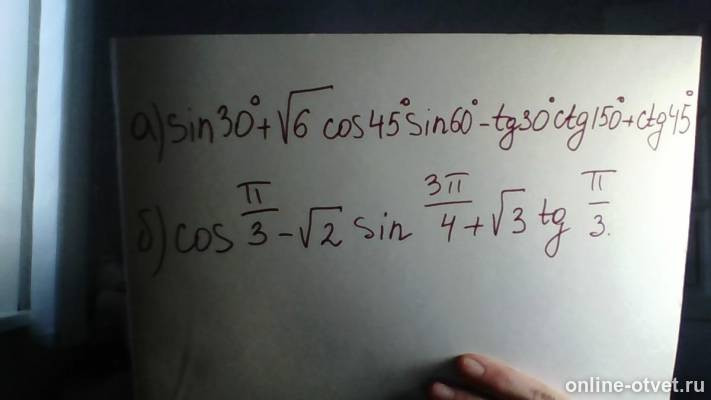 а) sin30°+√6 cos45°sin60°-tg30°ctg150°+ctg45°
б) cos π/3 - √2 sin 3π/4 + √3 tg π/3.
online-otvet.ru